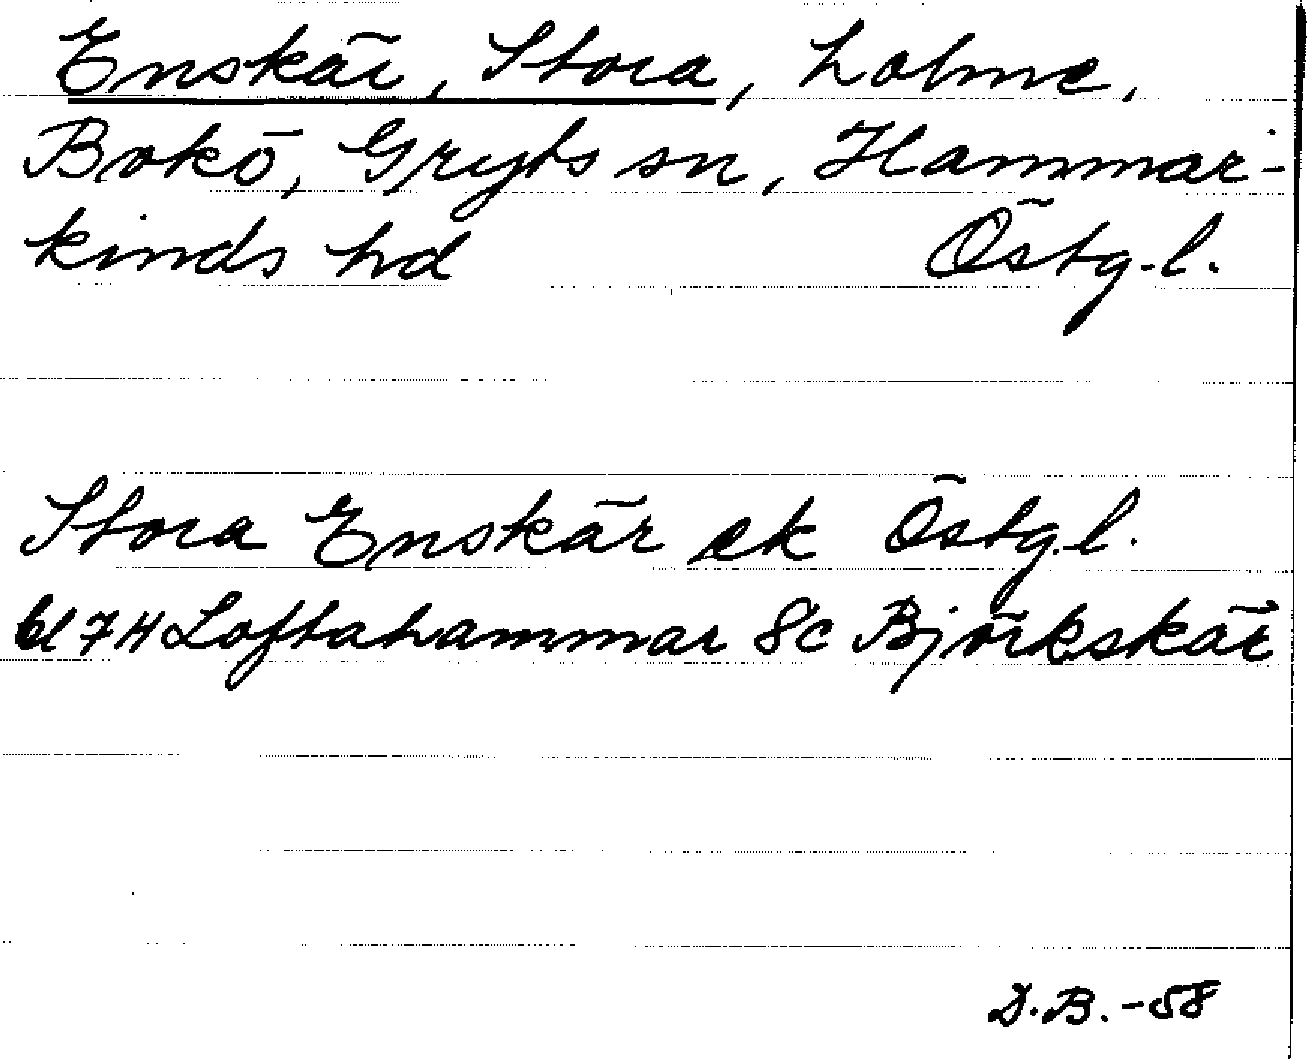 Enskär, Stora, holme,
Bokö, Gryts sn, Hammar-
kinds hd Östg.l.
Stora Enskär ek Östg.l.
bl 7H Loftahammar 8c Björkskär
D.B. -58